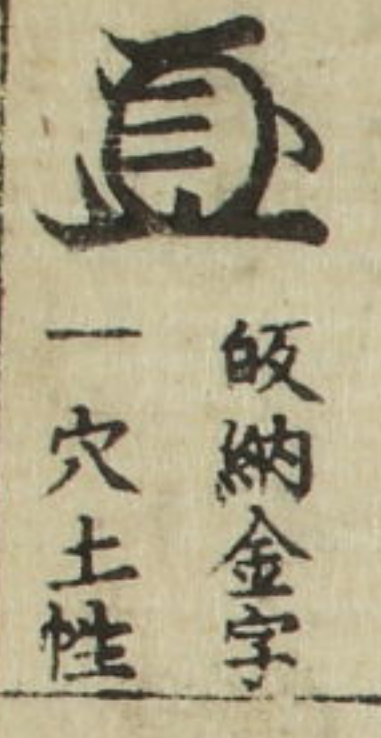 皈納金字
一穴土性